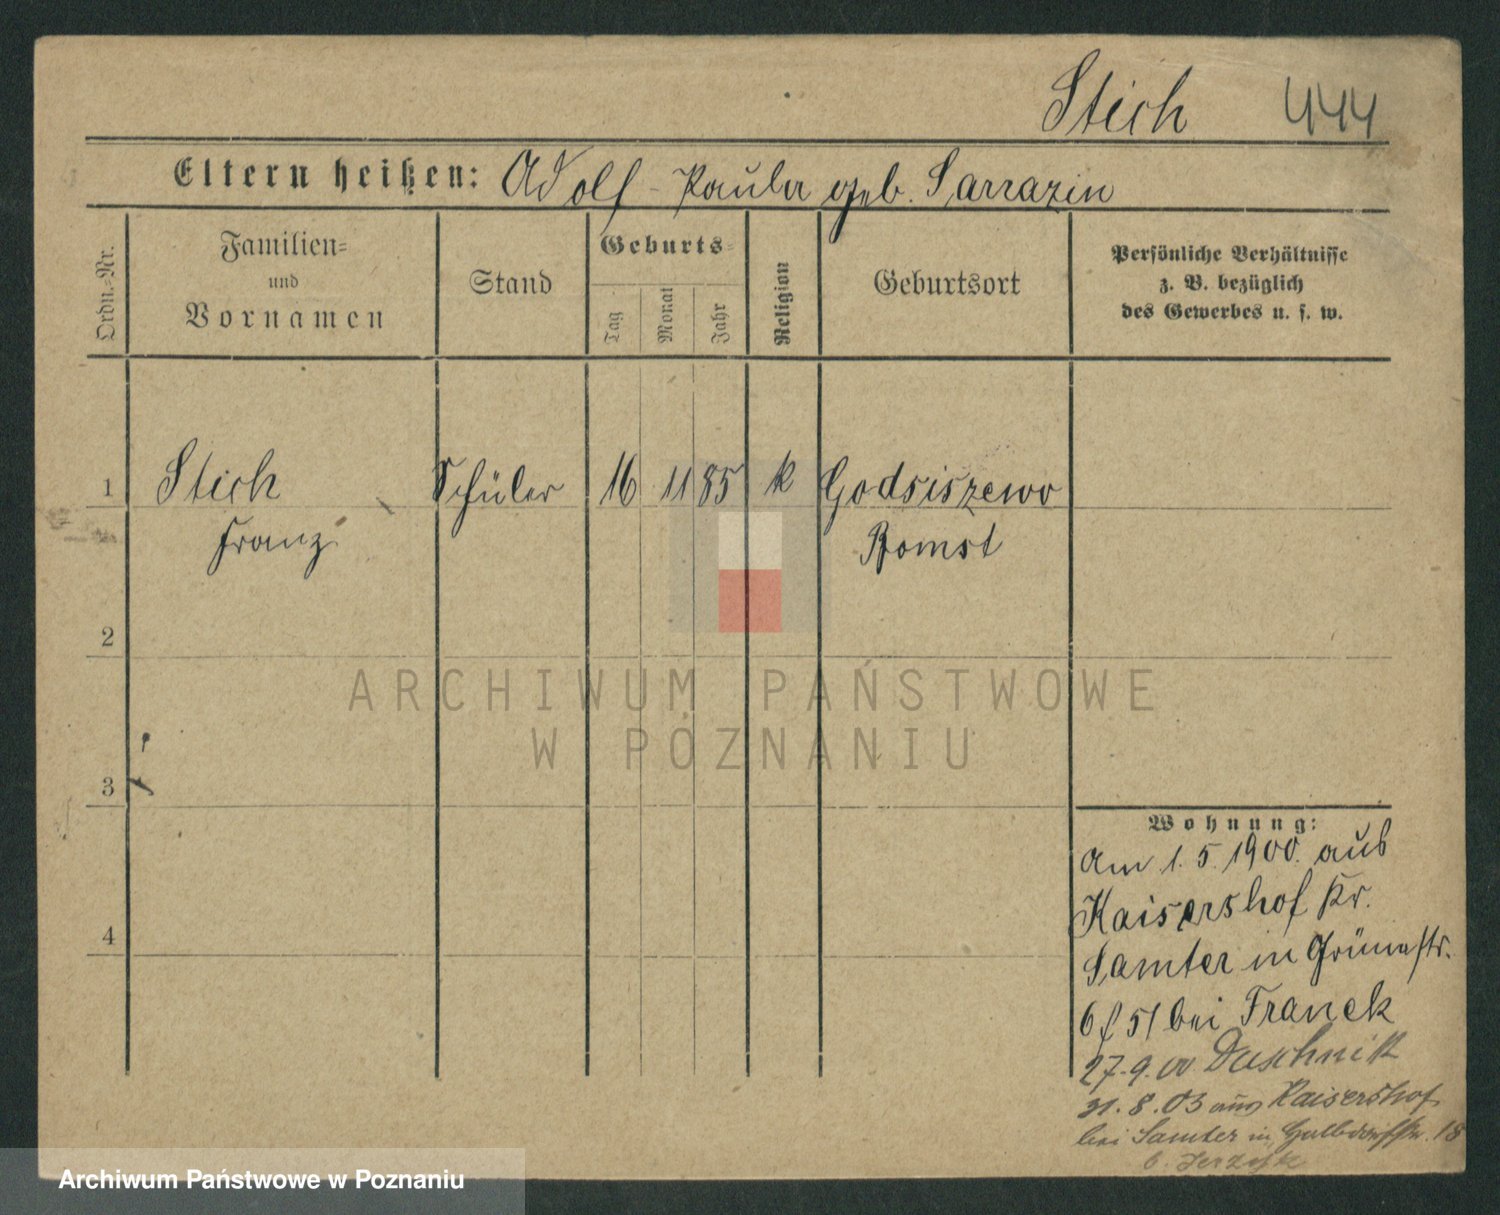 Stich 444
Eltern heißen: Adolf - Paula geb. Sarrazin
Ordn.-Nr.
Familien-
und
Vornamen
Stand
Geburts-
Tag
Monat
Jahr
Religion
Geburtsort
Persönliche Verhältnisse
z. B. bezüglich
des Gewerbes u. s. w.
1 Stich Schüler 16 11 85 k Godsiszewo
Franz Bomst
2
3
4
ARCHIWUM PAŃSTWOWE
W POZNANIU
Wohnung:
Am 1. 5. 1900. aus
Kaisershof Kr.
Samter in Grünestr.
6 bei Franck
27.9.00 Duschnik
31.8.03 aus Kaisershof
bei Samter in 18
b.
Archiwum Państwowe w Poznaniu